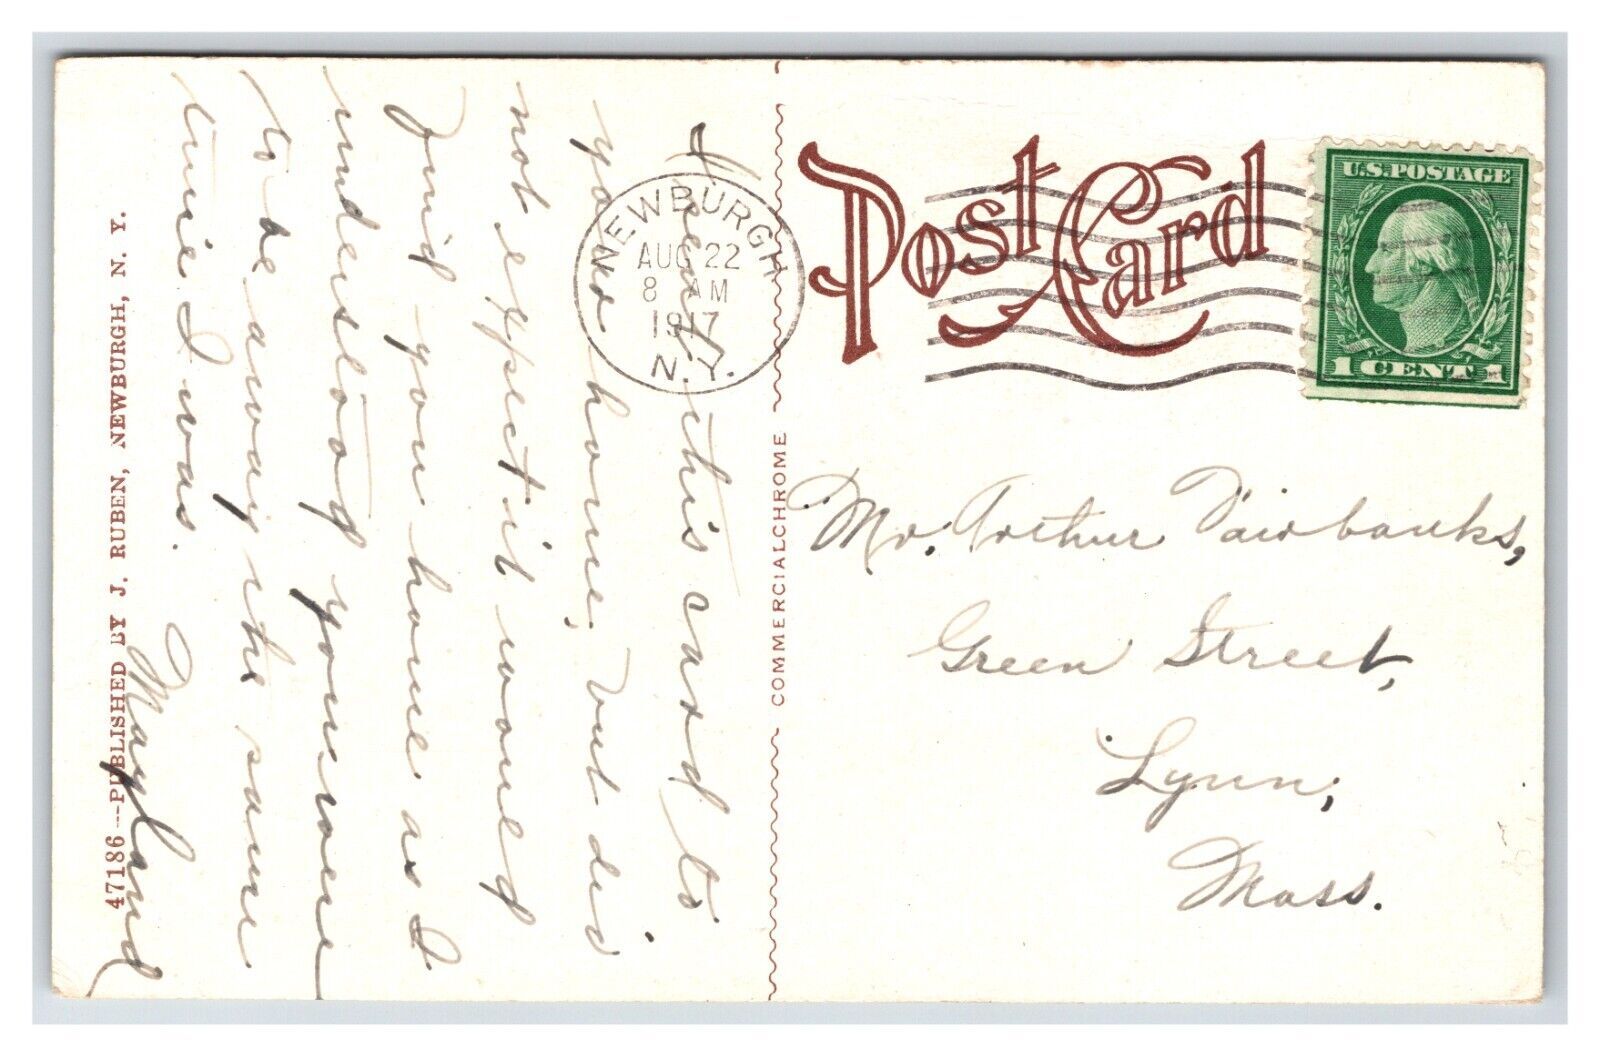 Post Card
U.S. POSTAGE
1 CENT 1
NEWBURGH
AUG 22
8 AM
1917
N.Y.
I sent this card to
your home, but did
not expect it would
find you home as I
understood you were
to be away the same
time I was.
Mayland
COMMERCIALCHROME
47186---PUBLISHED BY J. RUBEN, NEWBURGH, N. Y.
Mr. Arthur Fairbanks,
Green Street,
Lynn,
Mass.